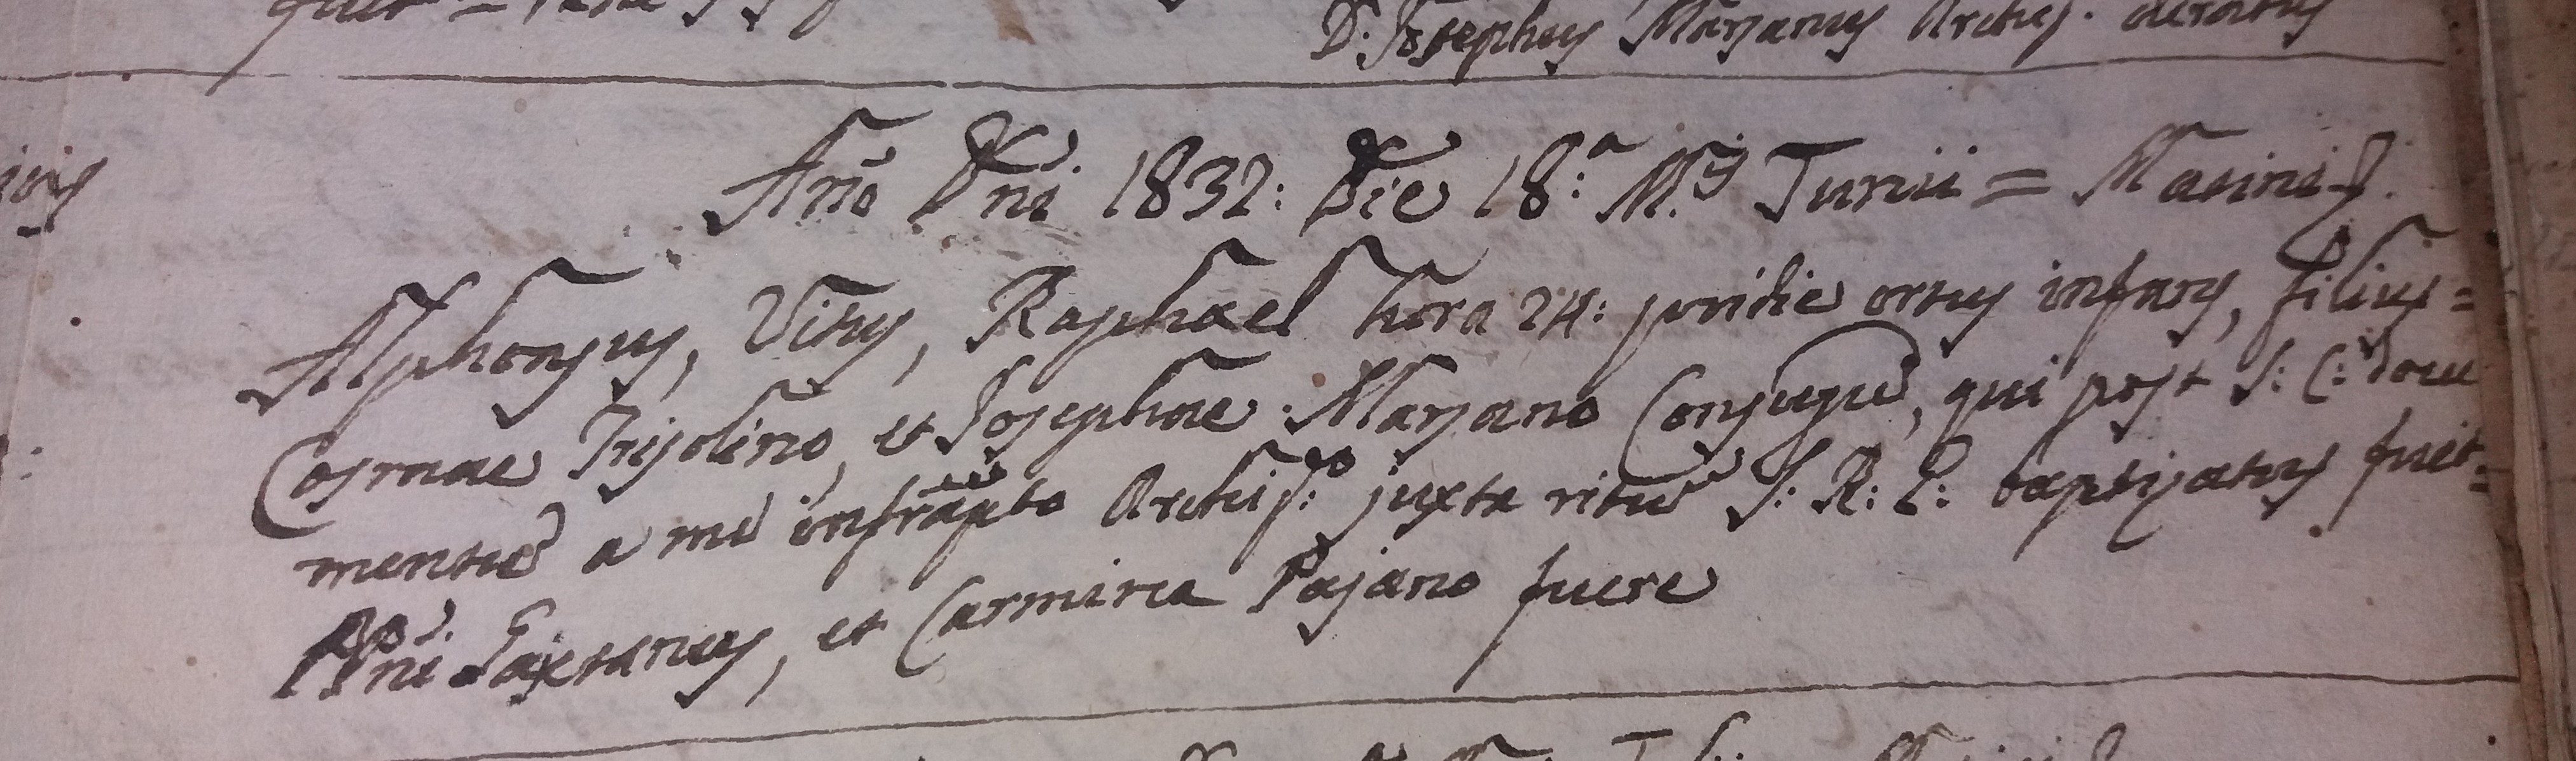 D: Josephus Marsanus Archip. Curatus
Año Dñi 1832: Die 18:a M.s Junii = Macinis.
Alphonsus, Vitus, Raphael hora 24: pridie ortus infans, filius =
Cosmae Trisolino, et Josephae Marsano Conjugū, qui post S: C: docu
mentū a me infrapto Archip:o juxta ritū S: R: E: baptizatus fuit =
PPni Gaetanus, et Carmina Pajano fuere